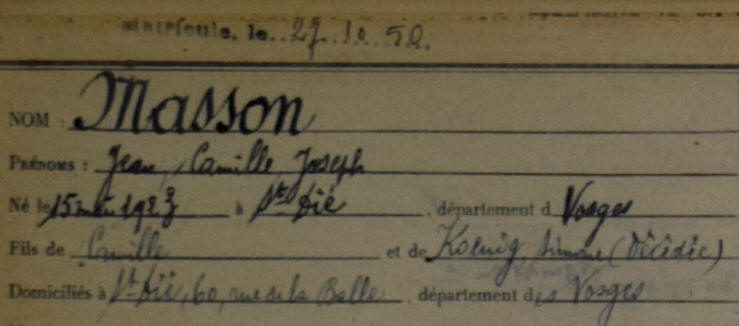 Matricule, le 27.10.50.
NOM : Masson
PRÉNOMS : Jean, Camille, Joseph
Né le 15 mai 1923 à St Dié, département d Vosges
Fils de Camille et de Koenig, Simone (Décédée)
Domiciliés à St Dié, 60, rue de la Bolle, département des Vosges